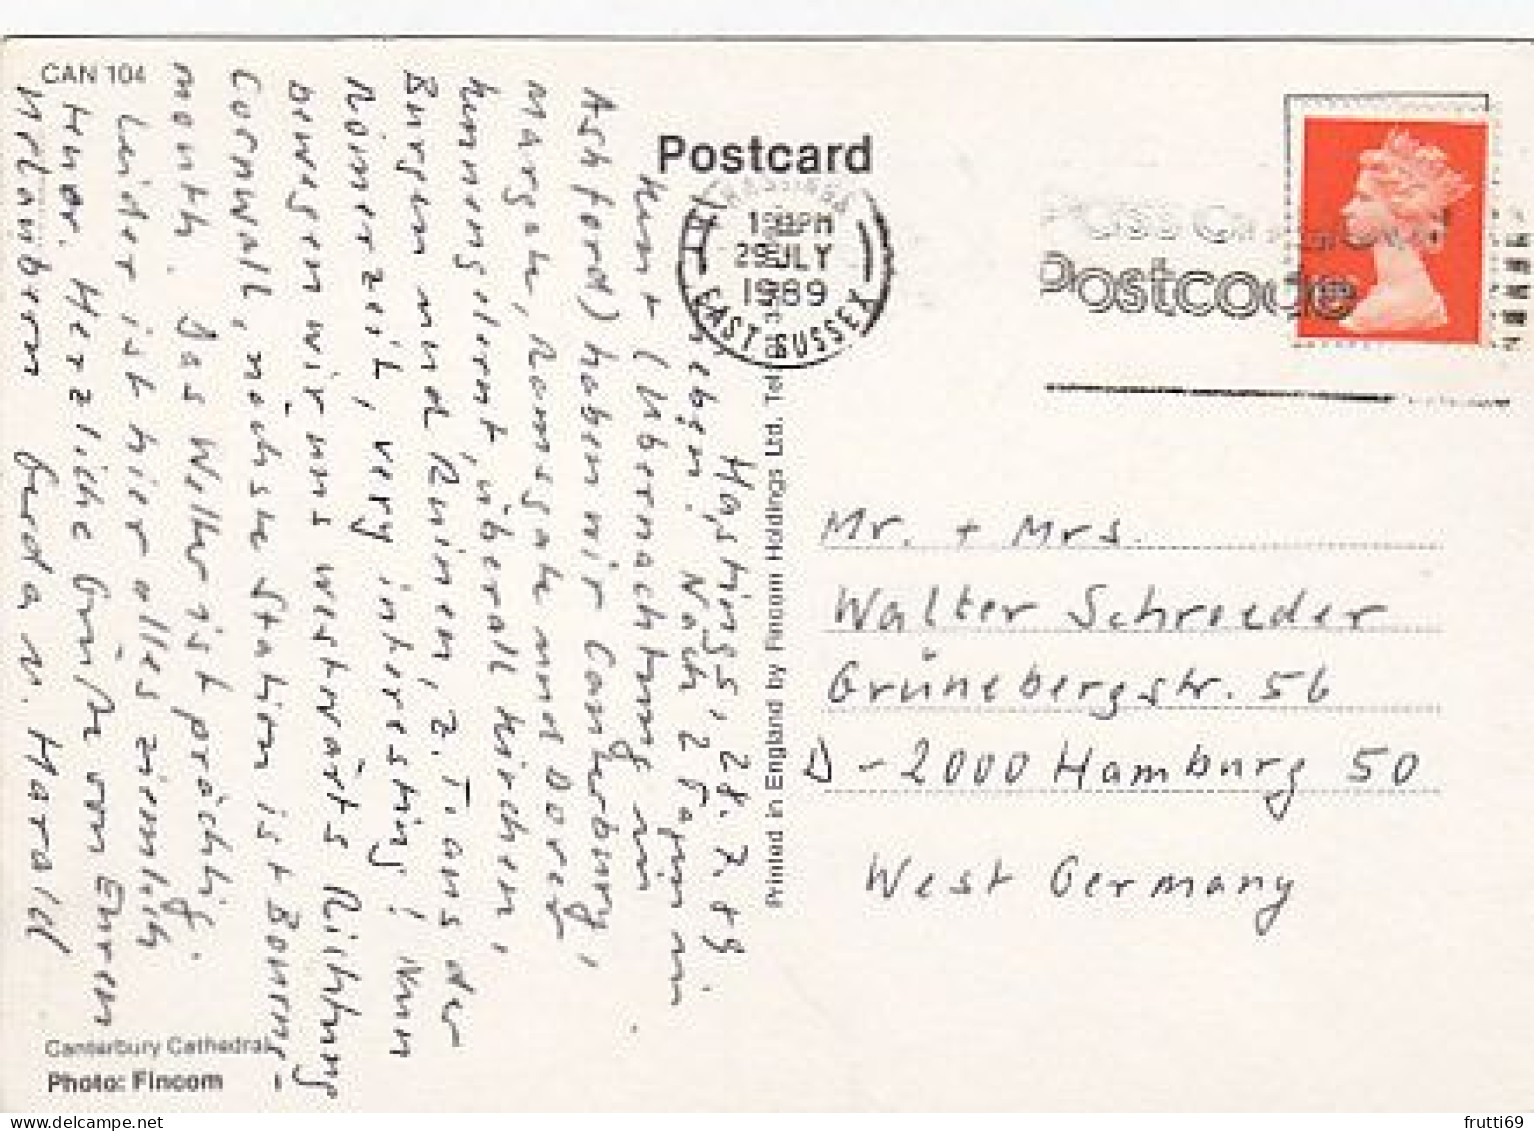 CAN 104
Postcard
HASTINGS
12 PM
29 JLY
1989
EAST SUSSEX
Postcode
Hastings, 28.7.89
Ihr Lieben! Nach 2 Tagen in
Kent (Übernachtung in
Ashford) haben wir Canterbury,
Margate, Ramsgate und Dover
kennengelernt, überall Kirchen,
Burgen und Ruinen, z.T. aus der
Römerzeit, very interesting! Nun
bewegen wir uns westwärts Richtung
Cornwall, nächste Station ist Bourne-
mouth. Das Wetter ist prächtig.
Leider ist hier alles ziemlich
teuer. Herzliche Grüße von Euren
Urlaubern Gerda u. Harald
Printed in England by Fincom Holdings Ltd. Tel
Mr. + Mrs.
Walter Schroeder
Grünebergstr. 56
D-2000 Hamburg 50
West Germany
Canterbury Cathedral
Photo: Fincom
frutti69